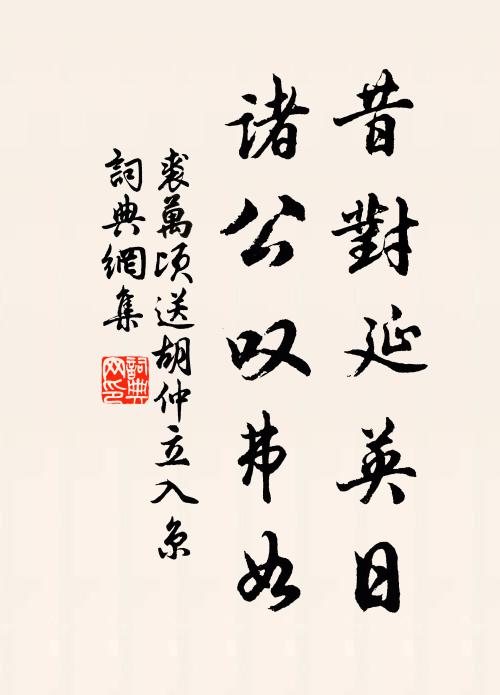 昔對延英日
诸公叹弗如
裘萬顷送胡仲立入京
詞典網集
詞典網印